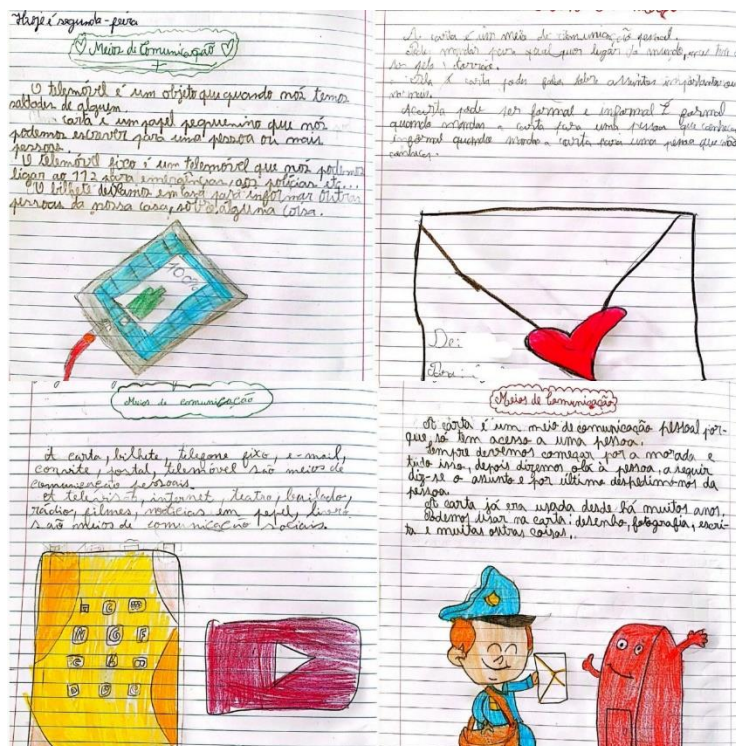 Hoje é segunda-feira
Meios de Comunicação
O telemóvel é um objeto que quando nós temos
saldades de alguém.
carta é um papel pequenino que nós
podemos escrever para uma pessoa ou mais
pessoas.
O telemóvel fixo é um telemóvel que nós podemos
ligar ao 112 para emergências, aos polícias etc...
O bilhete deixamos em casa para informar outras
pessoas da nossa casa, sobre alguma coisa.
100%
A carta é um meio de comunicação pessoal.
Pode mandar para qual quer lugar do mundo,
ser pelo correio.
carta pode falar sobre assuntos importantes ou
A carta pode ser formal e informal É formal
quando mandas a carta para uma pessoa que conheces
informal quando manda a carta para uma pessoa que não
conheces.
De:
Para:
Meios de comunicação
A carta, bilhete, telefone fixo, e-mail,
convite, postal, telemóvel são meios de
comunicação pessoais.
A televisão, internet, teatro,
rádio, filmes, notícias em papel, livro
são meios de comunicação sociais.
Meios de Comunicação
A carta é um meio de comunicação pessoal por-
que só tem acesso a uma pessoa.
Sempre devemos começar por a morada e
tudo isso, depois dizemos olá à pessoa, a seguir
diz-se o assunto e por último despedimo-nos da
pessoa.
A carta já era usada desde há muitos anos.
Podemos usar na carta: desenho, fotografia, escri-
ta e muitas outras coisas...